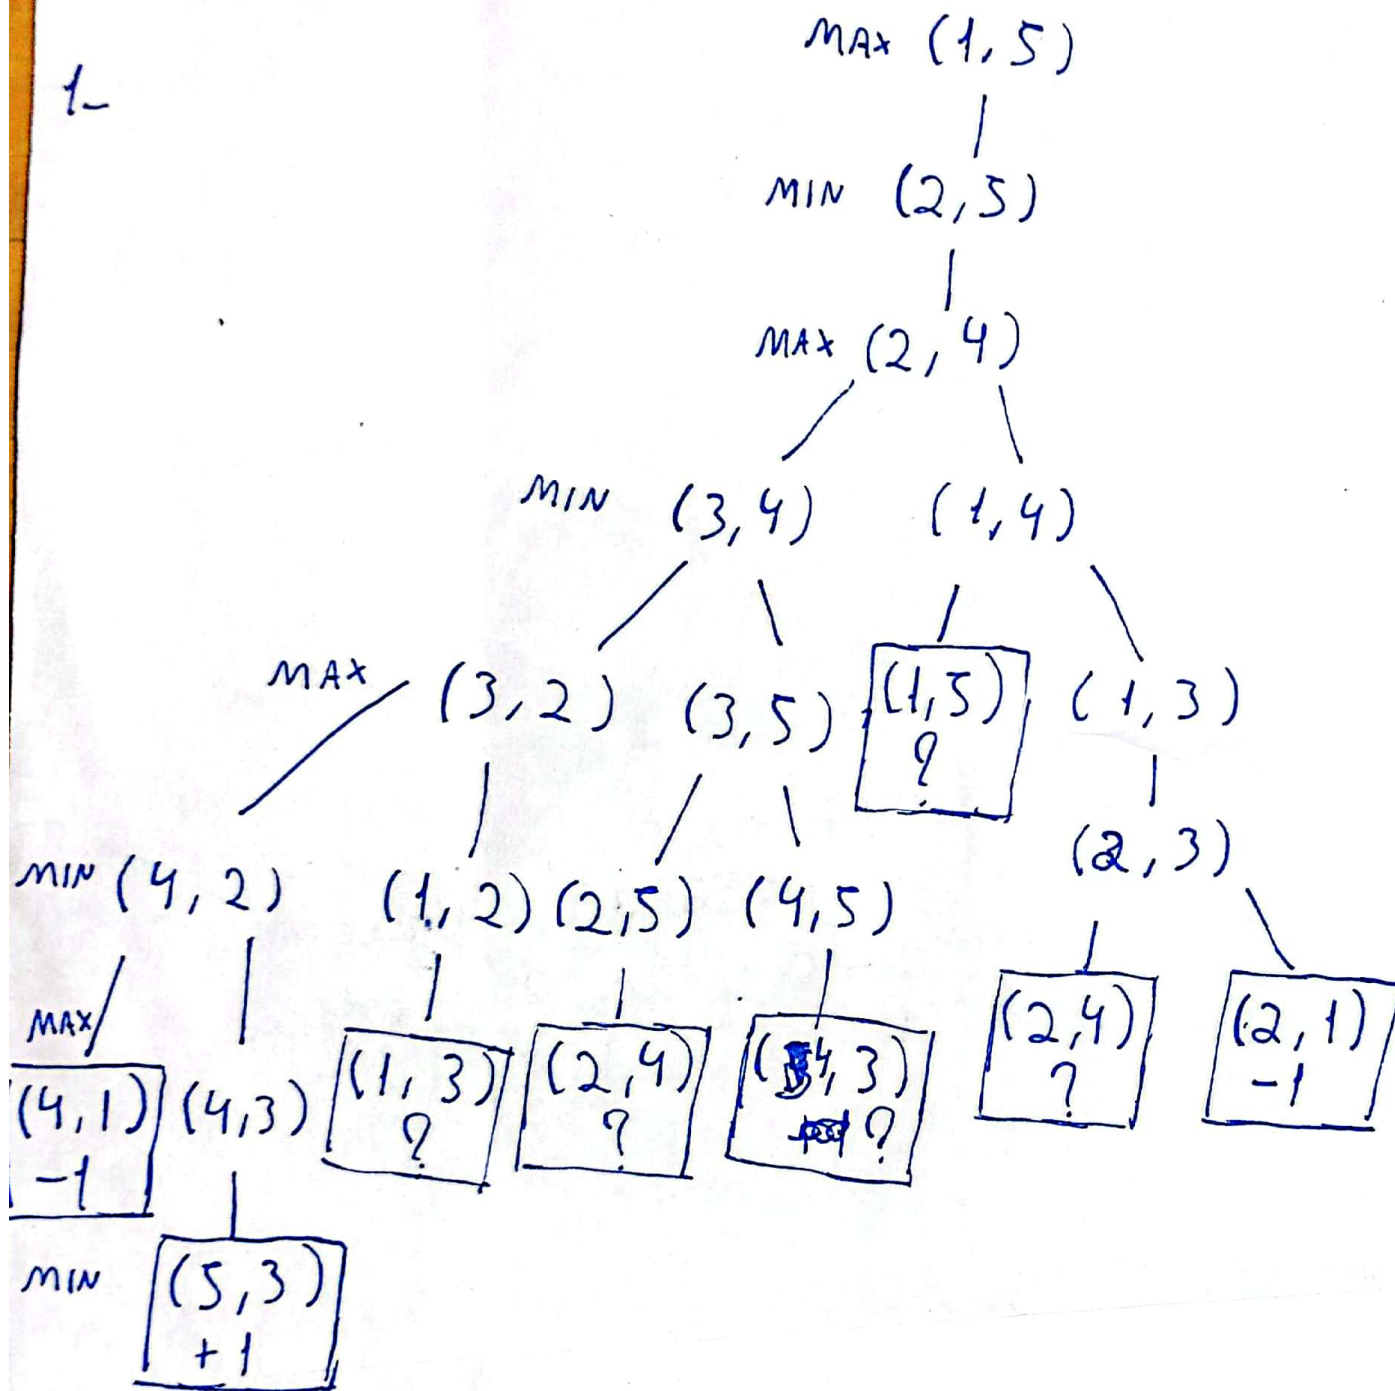 MAX (1,5)
1-
MIN (2,5)
MAX (2,4)
MIN (3,4) (1,4)
MAX (3,2) (3,5) (1,5) (1,3)
?
(2,3)
MIN (4,2) (1,2) (2,5) (4,5)
MAX
(2,4) (2,1)
? -1
(4,1) (4,3) (1,3) (2,4) (4,3)
-1 ? ? ?
MIN (5,3)
+1